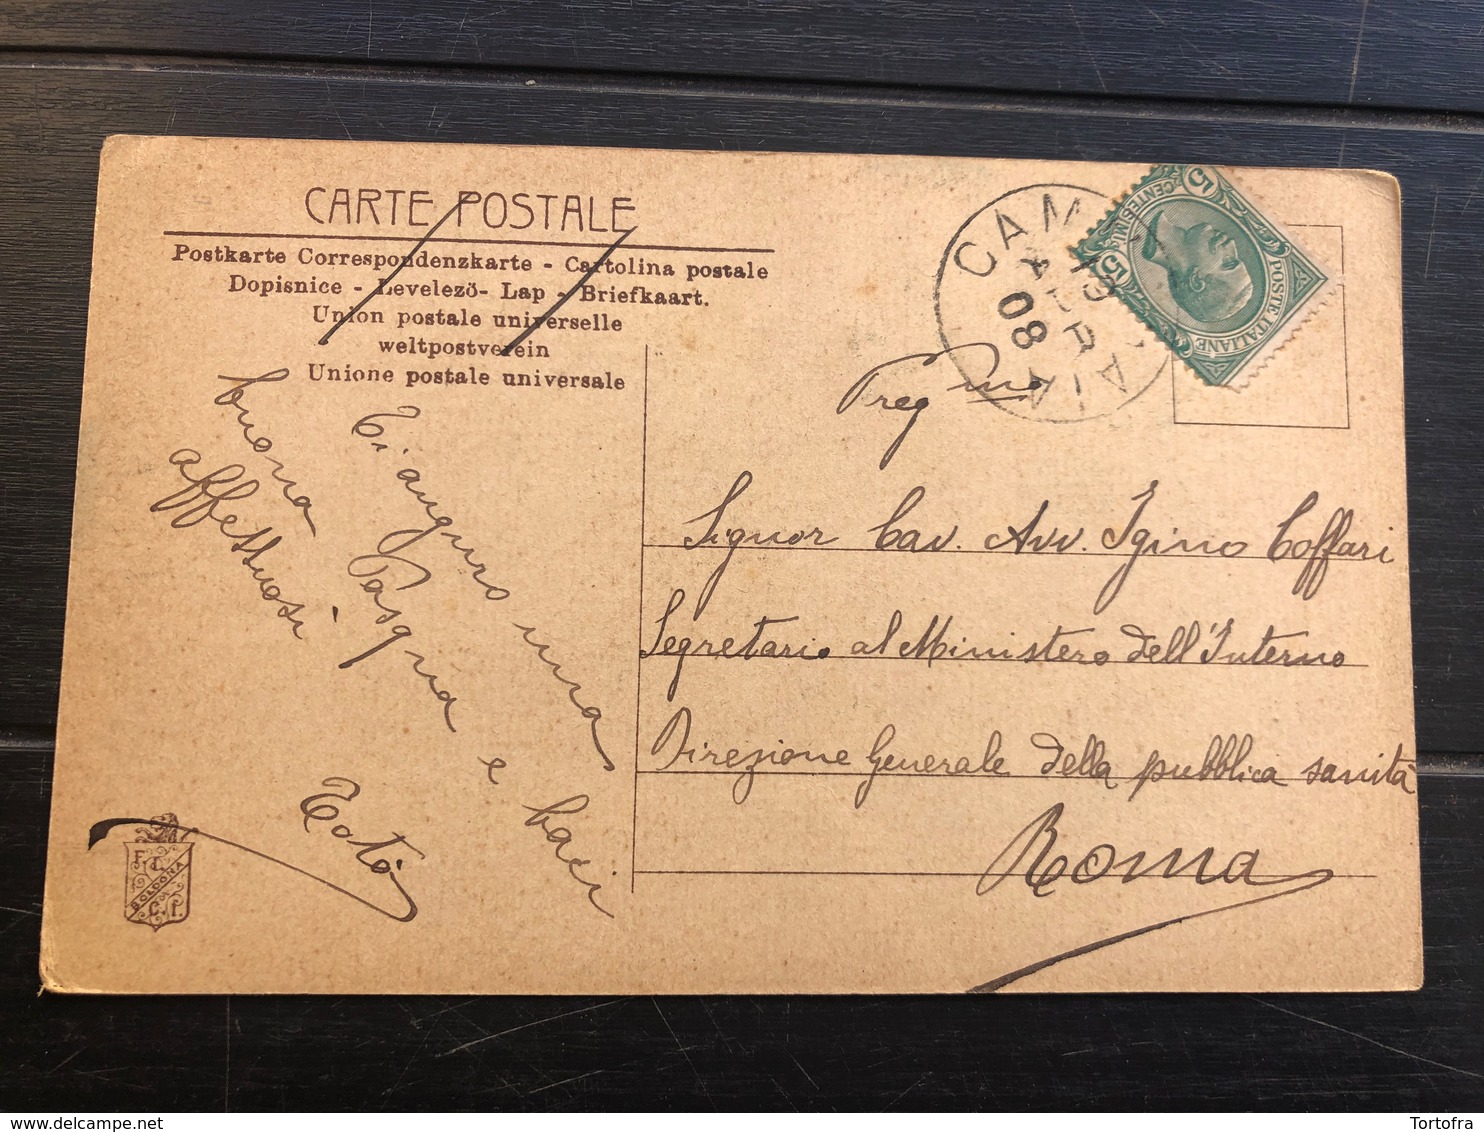 CARTE POSTALE
Postkarte Correspondenzkarte - Cartolina postale
Dopisnice - Levelezö- Lap - Briefkaart.
Union postale universelle
weltpostverein
Unione postale universale
Ti auguro una
buona Pasqua e baci
affettuosi
Totò
F. T.
BOLOGNA
C. P.
CAM
19
APR
08
CENTESIMI
5
5
POSTE ITALIANE
Preg mo
Signor Cav. Avv. Igino Coffari
Segretario al Ministero dell'Interno
Direzione Generale della pubblica sanità
Roma
Tortofra